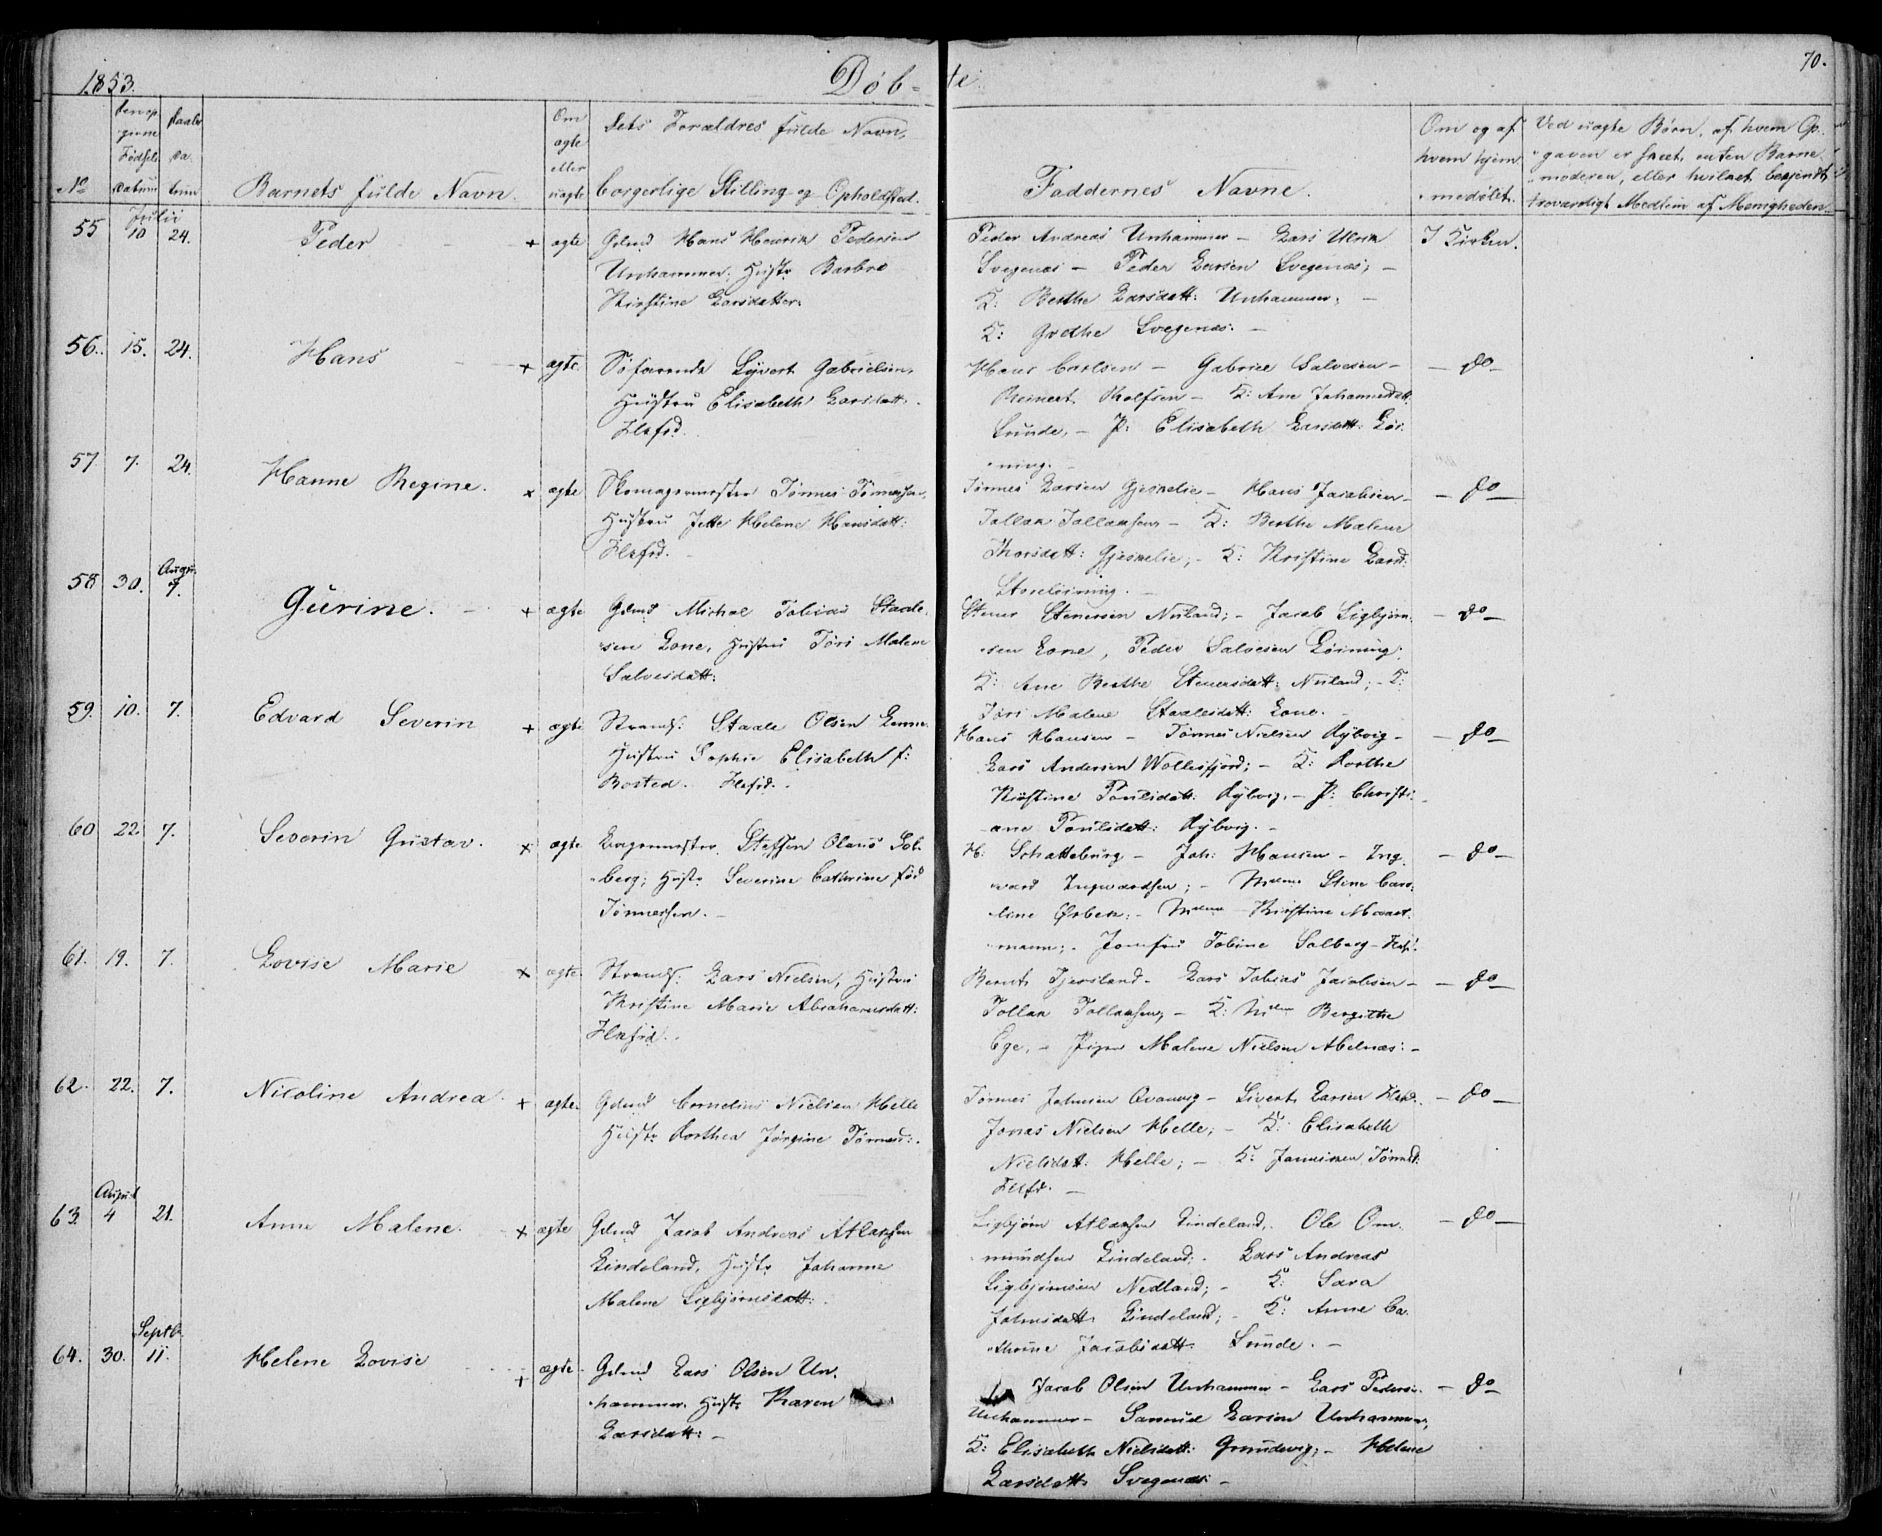 1853.
Døb-
te.
70.
No
Den op-
givne
Fødsels
Datum
Daabs
Da-
tum
Barnets fulde Navn.
Om
ægte
eller
uægte
Dets Forældres fulde Navn,
borgerlige Stilling og Opholdsted.
Faddernes Navne.
Om og af
hvem hjem-
medøbt.
Ved uægte Børn, af hvem Op-
gaven er skeet, enten Barne-
moderen, eller hvilket bekjendt,
troværdigt Medlem af Menigheden.
Julii
55 10 24. Peder + ægte
Gdmd Hans Henrik Pedersen
Unhammer, Hustr Barbro
Kirstine Larsdatter.
Peder Andreas Unhammer – Lars Ulrik
Svegenæs – Peder Larsen Svegenæs; –
K: Berthe Larsdatt: Unhammer; –
K: Grethe Svegenæs. –
I Kirken.
56. 15. 24. Hans + ægte
Søfarende Syvert Gabrielsen,
Hustru Elisabeth Larsdatt:
Flkfd.
Hans Carlsen – Gabriel Salvesen –
Reinert Rolfsen – K: Ane Johannesdatt:
Lunde, – P: Elisabeth Larsdatt: Løi-
ning. –
– do –
57 7. 24. Hanne Regine. + ægte
Skomagermester Tønnes Tønnessen,
Hustru Jette Helene Hansdatt:
Flkfd. –
Tønnes Larsen Gjeskelie – Hans Jacobsen –
Tollak Tollaksen – K: Berthe Malene
Thorsdatt: Gjeskelie; – K: Kristine Larsd:
Storeløining. –
– do –
Augu.
58 30. 7. Gurine. + ægte
Gdmd Michal Tobias Staale-
sen Eone, Hustru Tori Malene
Salvesdatt:
Stener Stenersen Nuland; – Jacob Sigbjørn-
sen Eone, Peder Salvesen Løining;
K: Ane Berthe Stenersdatt: Nuland; – K:
Tori Malene Staalesdatt: Eone. –
– do –
59. 10. 7. Edvard Severin + ægte
Strands: Staale Olsen
Hustru Sophie Elisabeth f:
Bosted. Flkfd.
Hans Hansen – Tønnes Nielsen Rybvig –
Lars Andersen Wollesfjord; – K: Dorthe
Kirstine Poulsdatt: Rybvig, – P: Christi-
ane Poulsdatt: Rybvig. –
– do –
60 22. 7. Severin Gustav. + ægte
Bagermester Steffen Olaus Sol-
berg; Hustr Severine Cathrine fød
Tønnessen. –
H: Schatteburg – Joh: Hansen – Ing-
ward Ingwardsen; – Mdme Stine Caro-
line Ørbek; – Mdme Kirstine
mann; – Jomfru Tobine Solberg – Flkf:
– do –
61. 19. 7. Lovise Marie + ægte
Strands: Lars Nielsen, Hustru
Kristine Marie Abrahamsdatt:
Flkfjd.
Bernt Tjersland – Lars Tobias Jacobsen –
Tollak Tollaksen, – K: Mdme Bergithe
Ege, – Pigen Malene Nielsen Abelnæs: –
– do –
62. 22. 7. Nicoline Andrea + ægte
Gdmd Cornelius Nielsen Helle
Hustr Dorthea Jørgine Tønnesd:.
Tønnes Johnsen – Sivert Larsen Flkfd.
Jonas Nielsen Helle; – K: Elisabeth
Nielsdatt: Helle; – K: Tønnesd:
Flkfd. –
– do –
August
63. 4 21. Anne Malene. + ægte
Gdmd Jacob Andreas Atlaksen
Lindeland, Hustr Johanne
Malene Sigbjørnsdatt:
Sigbjørn Atlaksen Lindeland, Ole Om-
mundsen Lindeland; Lars Andreas
Sigbjørnsen Nedland; – K: Sara
Johnsdatt: Lindeland; – K: Anne Ca-
thrine Jacobsdatt: Lunde. –
– do –
Septbr
64. 30. 11. Helene Lovise + ægte
Gdmd Lars Olsen Un-
hammer, Hustr Karen
Larsdatt: –
Jacob Olsen Unhammer – Lars Peders.
Unhammer – Samuel Larsen Unhammer,
K: Elisabeth Nielsdatt: Grundevig; – Helene
Larsdatt: Svegenæs: –
– do –